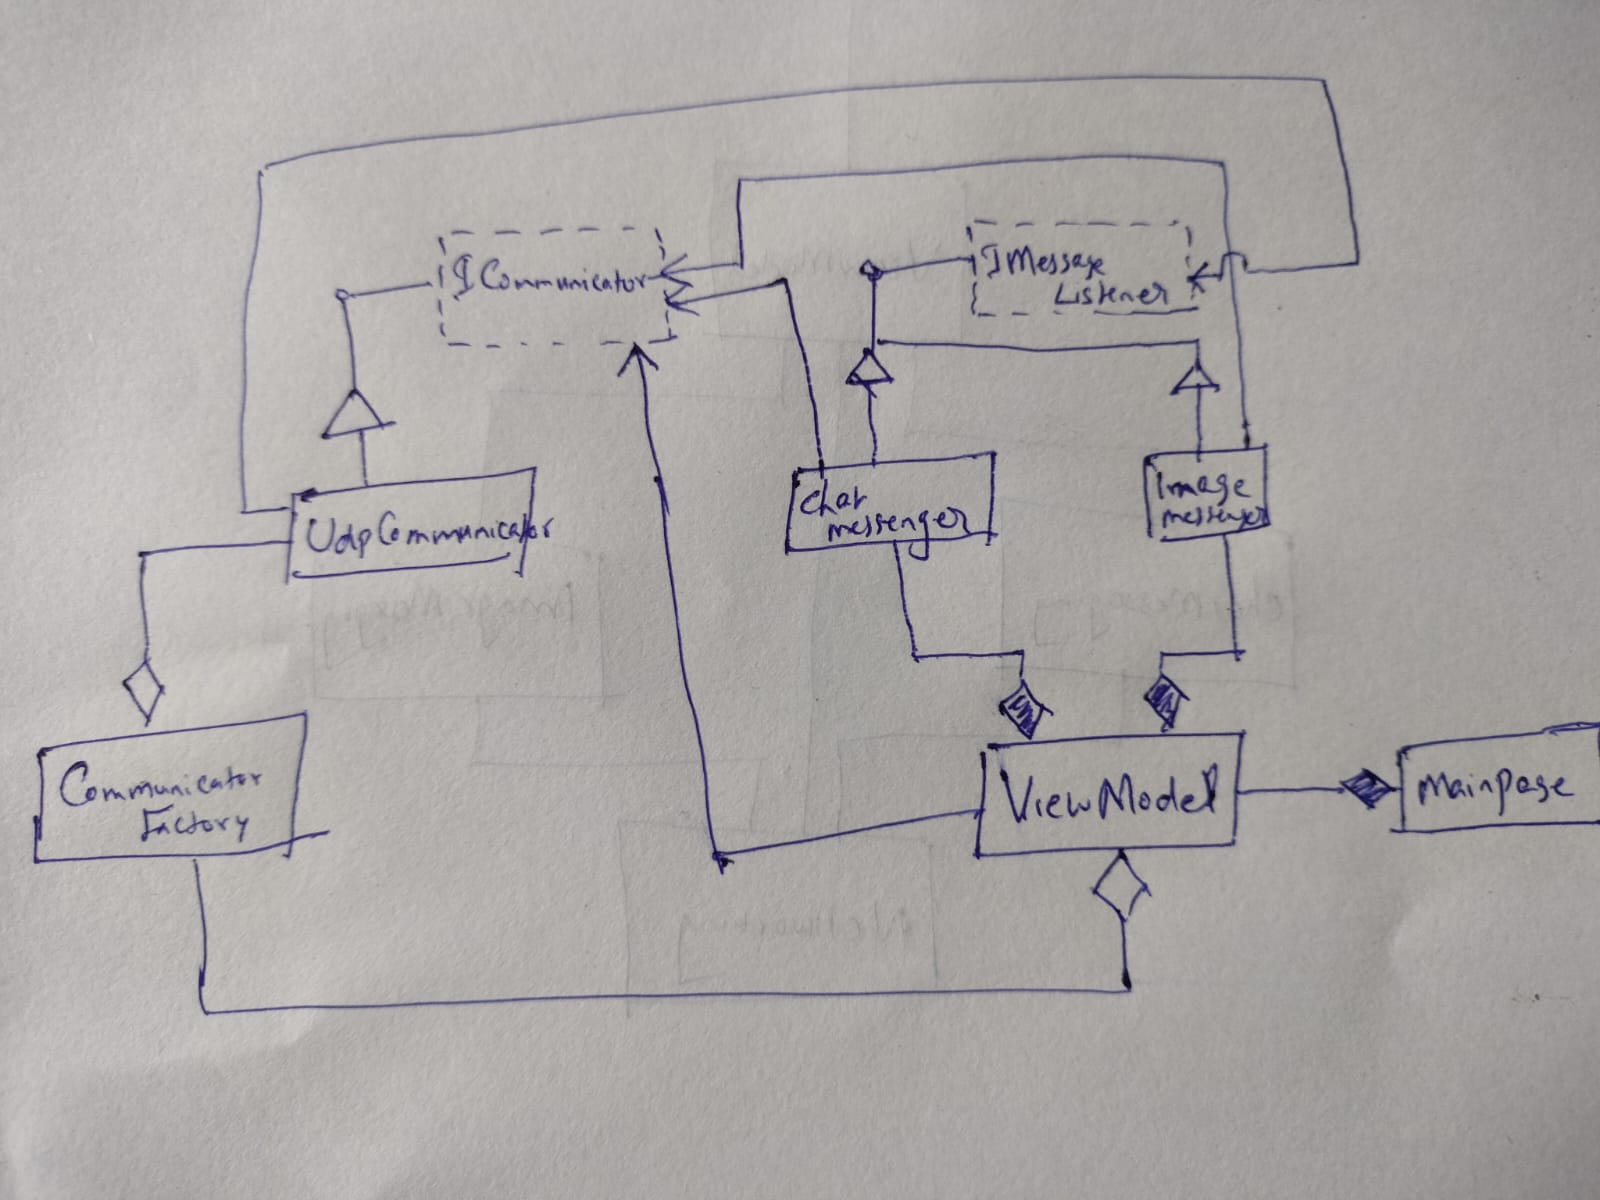 ICommunicator
IMessage
Listener
UdpCommunicator
Chat
messenger
Image
messenger
Communicator
Factory
ViewModel
MainPage